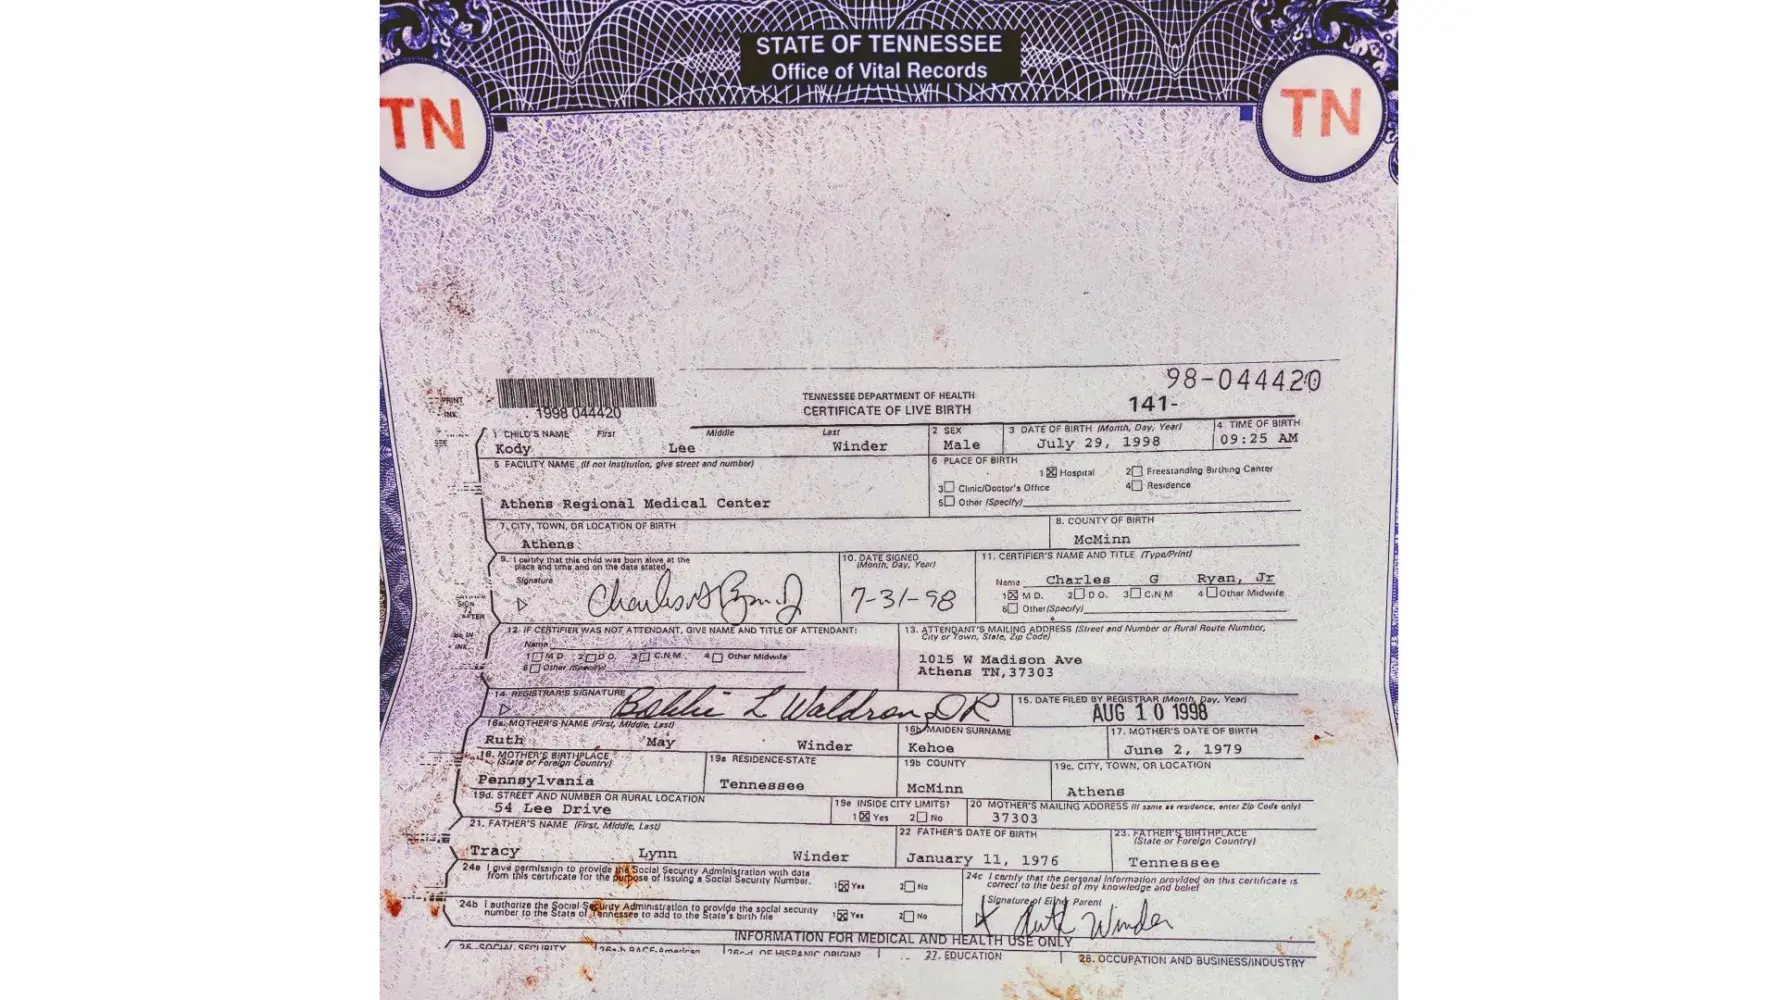 STATE OF TENNESSEE
Office of Vital Records
TN
TN
98-044420
1998 044420
TENNESSEE DEPARTMENT OF HEALTH
CERTIFICATE OF LIVE BIRTH
141-
PRINT
INK
1 CHILD'S NAME First Middle Last
Kody Lee Winder
2 SEX
Male
3 DATE OF BIRTH (Month, Day, Year)
July 29, 1998
4 TIME OF BIRTH
09:25 AM
5 FACILITY NAME (If not institution, give street and number)
Athens Regional Medical Center
6 PLACE OF BIRTH
1 ☒ Hospital 2 ☐ Freestanding Birthing Center
3 ☐ Clinic/Doctor's Office 4 ☐ Residence
5 ☐ Other (Specify)
7. CITY, TOWN, OR LOCATION OF BIRTH
Athens
8. COUNTY OF BIRTH
McMinn
9. I certify that this child was born alive at the
place and time and on the date stated.
Signature
10. DATE SIGNED
(Month, Day, Year)
7-31-98
11. CERTIFIER'S NAME AND TITLE (Type/Print)
Name Charles G Ryan, Jr
1 ☒ M D. 2 ☐ D O. 3 ☐ C.N M 4 ☐ Other Midwife
6 ☐ Other (Specify)
12. IF CERTIFIER WAS NOT ATTENDANT, GIVE NAME AND TITLE OF ATTENDANT:
Name
1 ☐ M D 2 ☐ D O. 3 ☐ C.N.M. 4 ☐ Other Midwife
5 ☐ Other (Specify)
13. ATTENDANT'S MAILING ADDRESS (Street and Number or Rural Route Number,
City or Town, State, Zip Code)
1015 W Madison Ave
Athens TN,37303
14 REGISTRAR'S SIGNATURE
Bobbie L Waldron, DR
15. DATE FILED BY REGISTRAR (Month, Day, Year)
AUG 10 1998
16a. MOTHER'S NAME (First, Middle, Last)
Ruth May Winder
16b MAIDEN SURNAME
Kehoe
17. MOTHER'S DATE OF BIRTH
June 2, 1979
18. MOTHER'S BIRTHPLACE
(State or Foreign Country)
Pennsylvania
19a RESIDENCE-STATE
Tennessee
19b COUNTY
McMinn
19c. CITY, TOWN, OR LOCATION
Athens
19d. STREET AND NUMBER OR RURAL LOCATION
54 Lee Drive
19e INSIDE CITY LIMITS?
1 ☒ Yes 2 ☐ No
20 MOTHER'S MAILING ADDRESS (If same as residence, enter Zip Code only)
37303
21. FATHER'S NAME (First, Middle, Last)
Tracy Lynn Winder
22 FATHER'S DATE OF BIRTH
January 11, 1976
23. FATHER'S BIRTHPLACE
(State or Foreign Country)
Tennessee
24a I give permission to provide the Social Security Administration with data
from this certificate for the purpose of issuing a Social Security Number.
1 ☒ Yes 2 ☐ No
24b I authorize the Social Security Administration to provide the social security
number to the State of Tennessee to add to the State's birth file
1 ☒ Yes 2 ☐ No
24c I certify that the personal information provided on this certificate is
correct to the best of my knowledge and belief
Signature of Either Parent
Ruth Winder
INFORMATION FOR MEDICAL AND HEALTH USE ONLY
25. SOCIAL SECURITY
26a-b RACE-American
OF HISPANIC ORIGIN?
27. EDUCATION
28. OCCUPATION AND BUSINESS/INDUSTRY